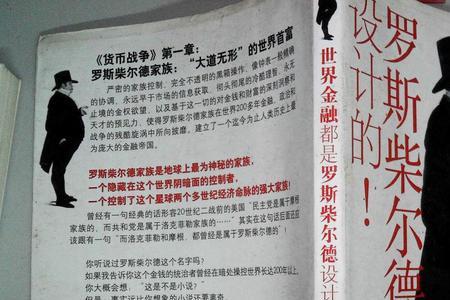 《货币战争》第一章:
罗斯柴尔德家族:“大道无形”的世界首富
严密的家族控制、完全不透明的黑箱操作、像钟表一般精确
的协调、永远早于市场的信息获取、彻头彻尾的冷酷理智、永无
止境的金权欲望,以及基于这一切的对金钱和财富的深刻洞察和
天才的预见力,使得罗斯柴尔德家族在世界200多年金融、政治和
战争的残酷旋涡中所向披靡,建立了一个迄今为止人类历史上最
为庞大的金融帝国。
罗斯柴尔德家族是地球上最为神秘的家族,
一个隐藏在这个世界阴暗面的控制者,
一个控制了这个星球两个多世纪经济命脉的强大家族!
曾经有一句经典的话形容20世纪二战前的美国“民主党是属于摩根
家族的,而共和党是属于洛克菲勒家族的……”其实在这句话后面还应
该跟有一句“而洛克菲勒和摩根,都曾经是属于罗斯柴尔德的!”
你听说过罗斯柴尔德这个名字吗?
如果我告诉你这个金钱的统治者曾经在暗处操控世界长达200年以上,
你大概会想:“这是不是小说?”
但是,事实远比你想象的小说还要离奇
世界金融都是罗斯柴尔德设计
罗斯柴尔德
设计的!